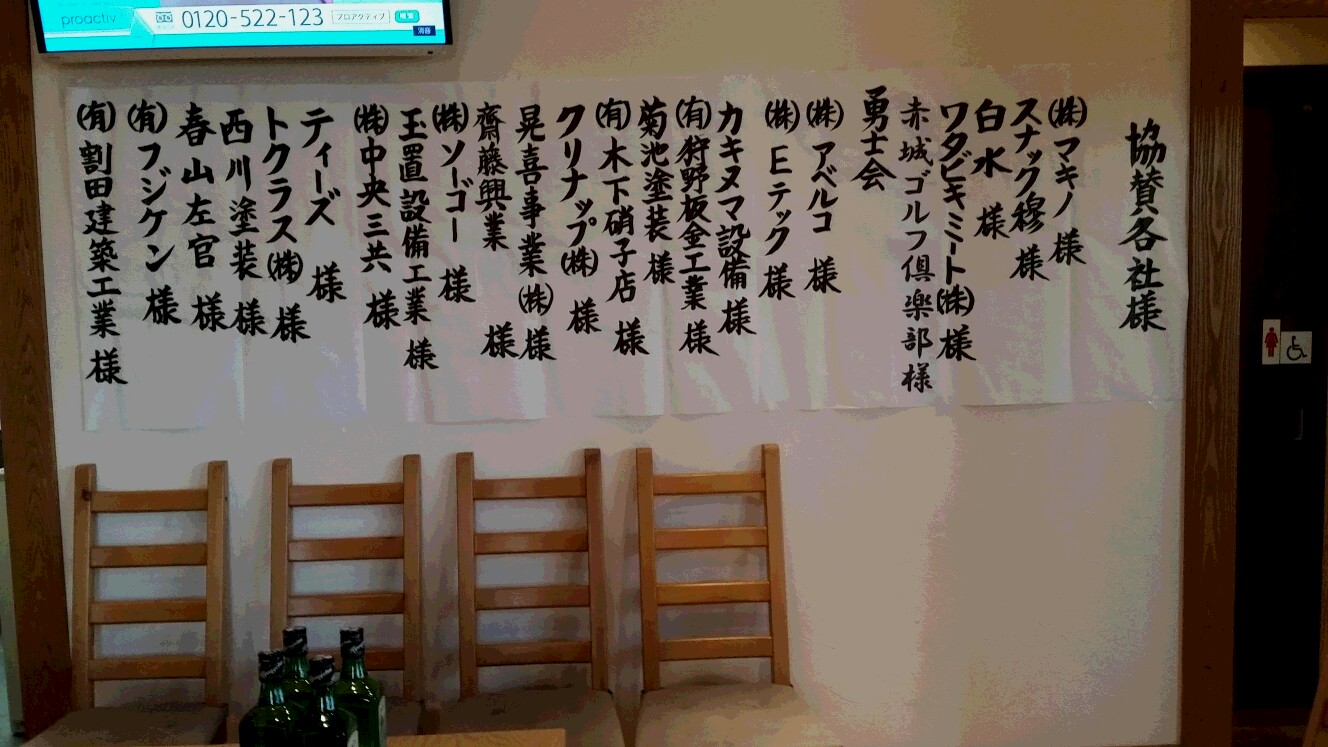 proactiv
0120-522-123
プロアクティブ
検索
消音
協賛各社様
㈱マキノ 様
スナック穆 様
白水 様
ワタビキミート㈱ 様
赤城ゴルフ倶楽部 様
勇士会
㈱アベルコ 様
㈱Eテック 様
カキヌマ設備 様
㈲狩野板金工業 様
菊池塗装 様
㈲木下硝子店 様
クリナップ㈱ 様
晃喜事業㈱ 様
齋藤興業 様
㈱ソーゴー 様
玉置設備工業 様
㈱中央三共 様
ティーズ 様
トクラス㈱ 様
西川塗装 様
春山左官 様
㈲フジケン 様
㈲割田建築工業 様